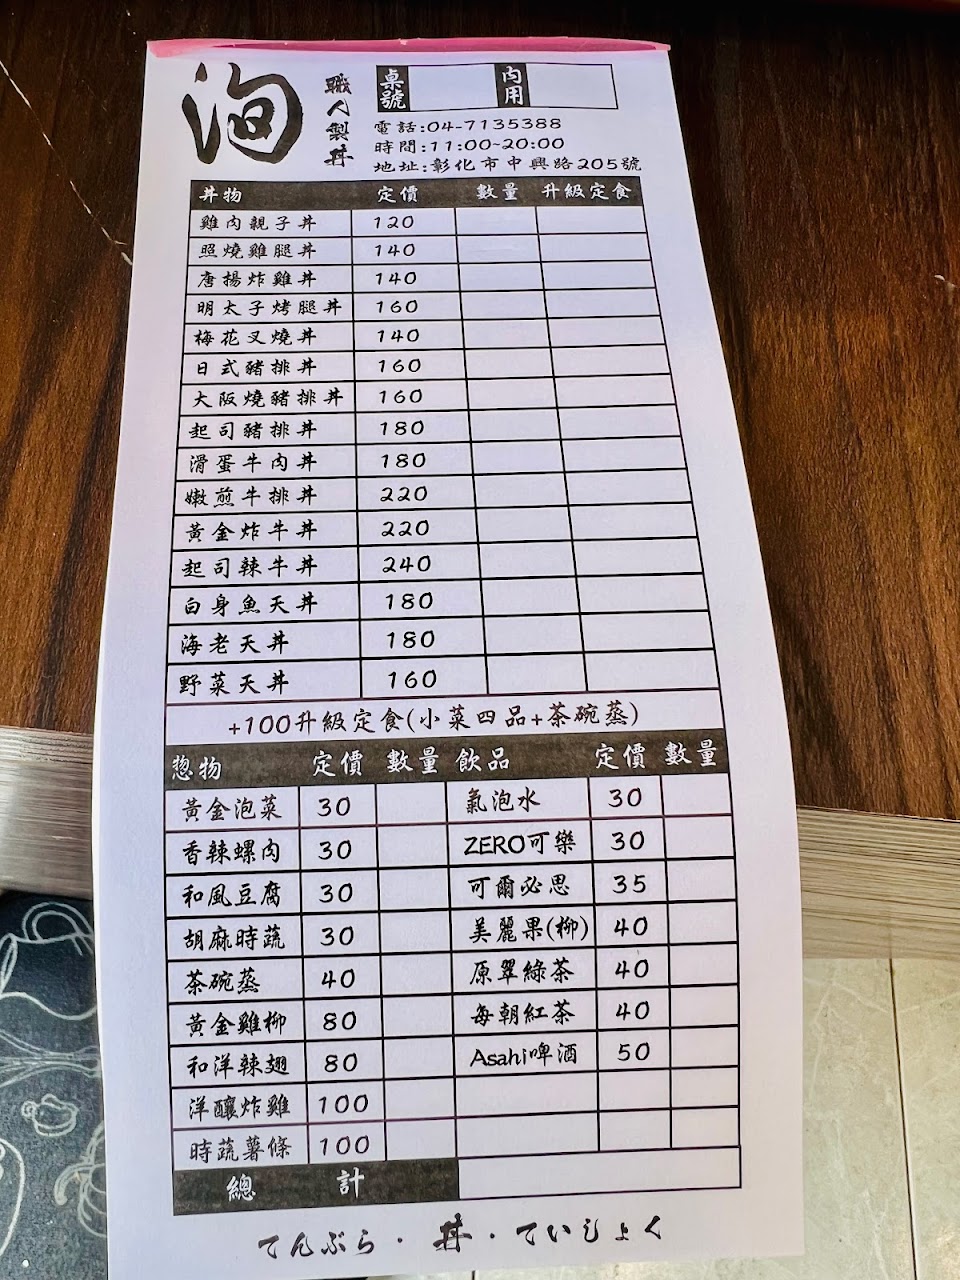 洵 職人製丼
桌號 內用
電話:04-7135388
時間:11:00~20:00
地址:彰化市中興路205號
丼物 定價 數量 升級定食
雞肉親子丼 120
照燒雞腿丼 140
唐揚炸雞丼 140
明太子烤腿丼 160
梅花叉燒丼 140
日式豬排丼 160
大阪燒豬排丼 160
起司豬排丼 180
滑蛋牛肉丼 180
嫩煎牛排丼 220
黃金炸牛丼 220
起司辣牛丼 240
白身魚天丼 180
海老天丼 180
野菜天丼 160
+100升級定食(小菜四品+茶碗蒸)
惣物 定價 數量 飲品 定價 數量
黃金泡菜 30 氣泡水 30
香辣螺肉 30 ZERO可樂 30
和風豆腐 30 可爾必思 35
胡麻時蔬 30 美麗果(柳) 40
茶碗蒸 40 原翠綠茶 40
黃金雞柳 80 每朝紅茶 40
和洋辣翅 80 Asahi啤酒 50
洋釀炸雞 100
時蔬薯條 100
總計
てんぷら・丼・ていしょく